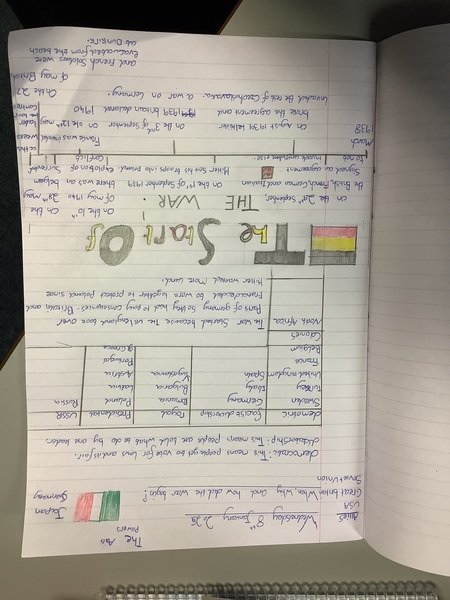 The Axis
Powers
Wednesday 8th January 2025
Japan
Germany
Allies
USA
Great britain
Soviet union
When, why and how did the war begin?
This means people get to vote for laws and its fair.
dictatorship: This means people are told what to do by one leader.
fascist dictatorship Royal Presidential USSR
Sweden Germany Romania Poland Russia
Turkey Italy Bulgaria Latvia
United kingdom Spain Yugoslavia Austria
France Portugal
Belgium greece
Colonies
North Africa
The war Started because the took over
Parts of germany so they had to pay consequences. Britain and
France decided to work together to protect Poland since
Hitler wanted more Land.
The Start Of
THE WAR.
On the 29th September
the British, French, German and Italian
Signed an agreement
to not to
invade
On the 1st of September 1939
Hitler sent his troops into poland.
On the 10th
of May 1940
there was
explosion of
Conflict
On the
28th may
belgium
Surrendered
March
1938
On August 1939 Hitler
broke the agreement and
Invaded the rest of Czechoslovakia.
On the 3rd of September
1939 britain declared
a war on Germany.
France was invaded
on the 12th may
1940
On the 27
of may British
and French Soldiers were
evacuated from the beach
at Dunkirk.